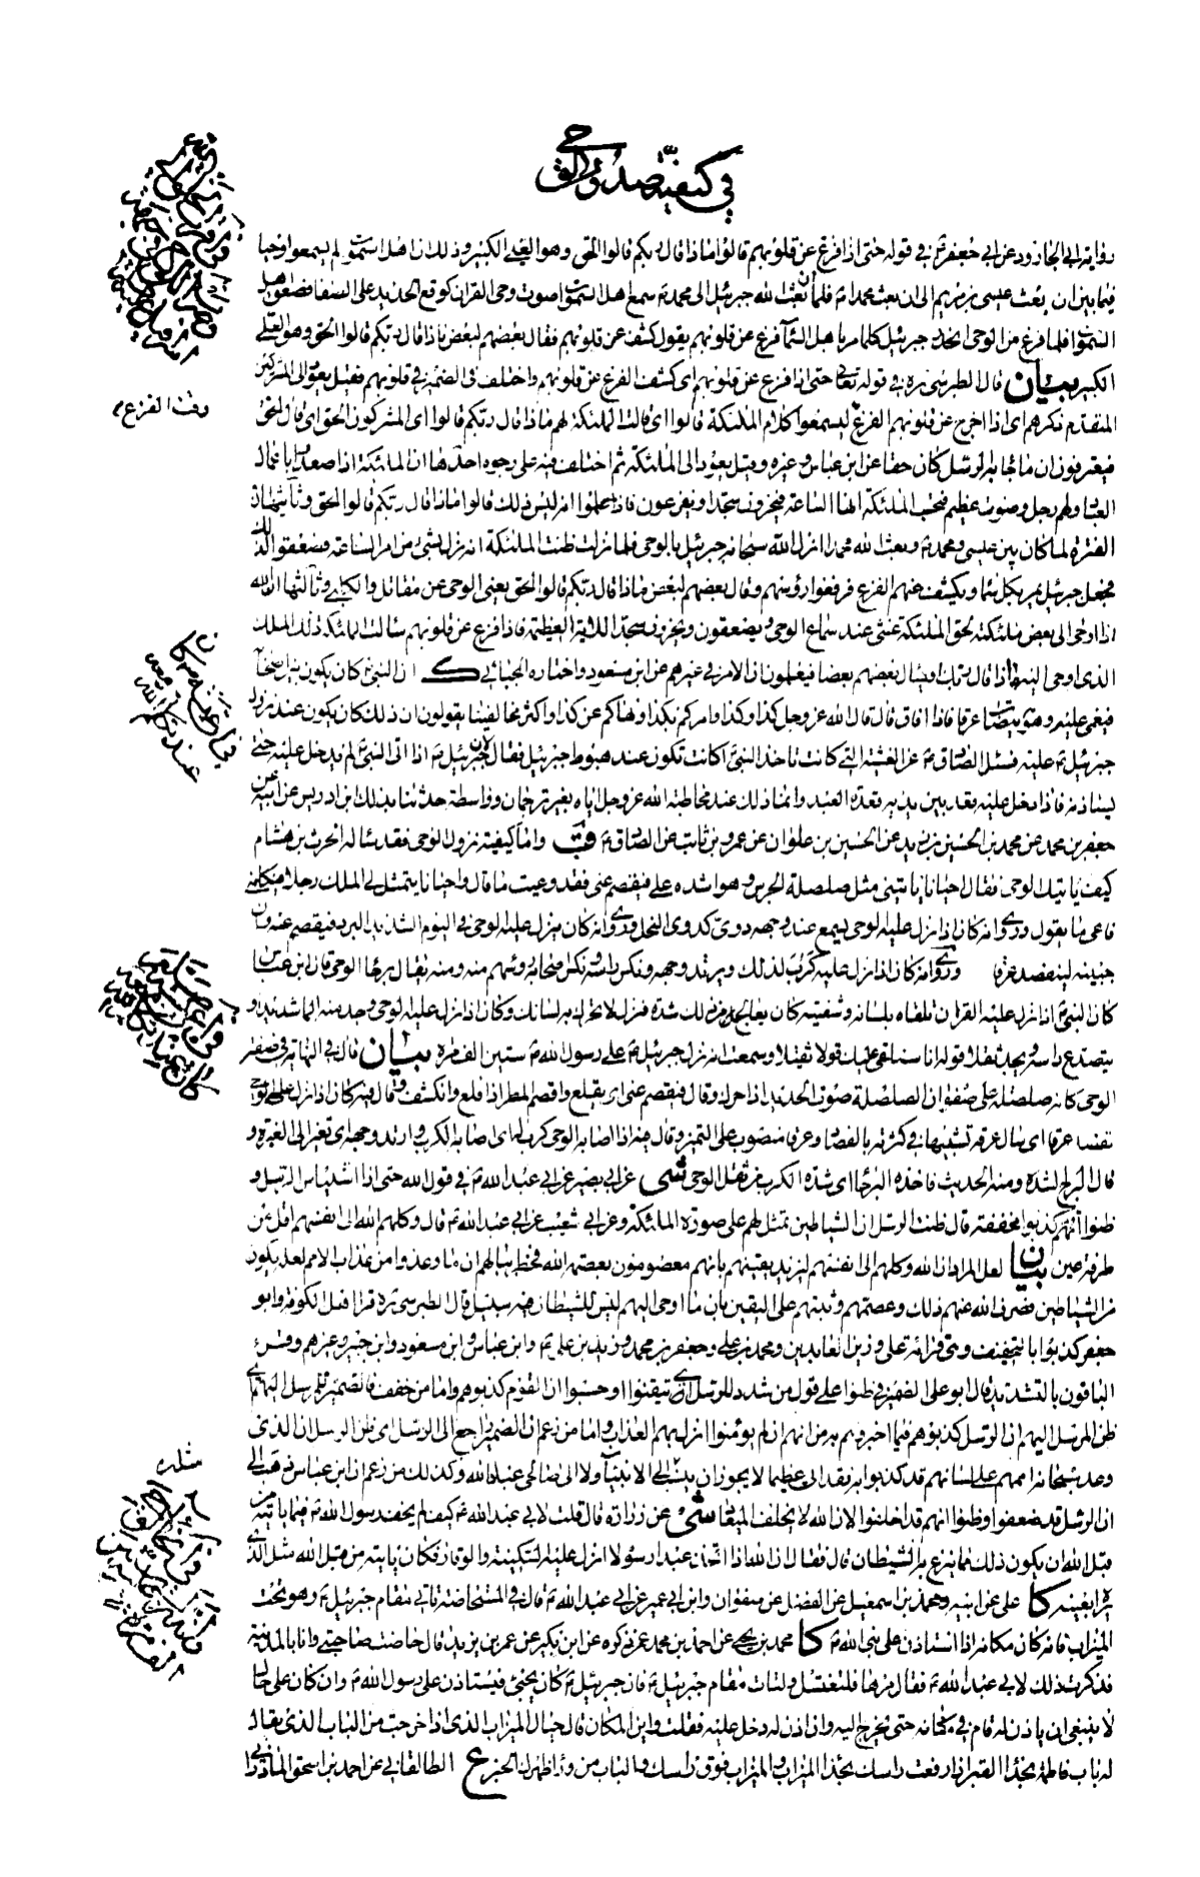 في كيفية صدور الوحي
رواية ابي الجارود عن ابي جعفر ع في قوله حتى اذا فزع عن قلوبهم قالوا ماذا قال ربكم قالوا الحق وهو العلي الكبير وذلك ان اهل السموات لم يسمعوا وحيا
فيما بين ان بعث عيسى بن مريم الى ان بعث محمد ص فلما بعث الله جبرئيل الى محمد ص سمع اهل السموات صوت وحي القران كوقع الحديد على الصفا فصعق اهل
السموات فلما فرغ من الوحي انحدر جبرئيل كلما مر باهل السماء فزع عن قلوبهم يقول كشف عن قلوبهم فقال بعضهم لبعض ماذا قال ربكم قالوا الحق وهو العلي
الكبير بيان قال الطبرسي ره في قوله تعالى حتى اذا فزع عن قلوبهم اى كشف الفزع عن قلوبهم واختلف في الضمير في قلوبهم فقيل يعود الى المشركين
المتقدم ذكرهم اى اذا اخرج عن قلوبهم الفزع ليسمعوا كلام الملئكة قالوا اى قالت الملئكة لهم ماذا قال ربكم قالوا اى المشركون الحق اى قال الحق
فيعترفون ان ما جاء به الرسل كان حقا عن ابن عباس وغيره وقيل يعود الى الملئكة ثم اختلف فيه على وجوه احدها ان الملائكة اذا صعدت باعمال
العباد ولهم زجل وصوت عظيم فتحسب الملئكة انها الساعة فيخرون سجدا ويفزعون فاذا علموا انه ليس ذلك قالوا ماذا قال ربكم قالوا الحق وثانيها ان
الفترة لما كان بين عيسى ومحمد ص وبعث الله محمدا انزل الله سبحانه جبرئيل بالوحي فلما نزلت ظنت الملئكة انه نزل بشئ من امر الساعة فصعقوا لذلك
فجعل جبرئيل يمر بكل سماء ويكشف عنهم الفزع فرفعوا رؤسهم وقال بعضهم لبعض ماذا قال ربكم قالوا الحق يعنى الوحي عن مقاتل والكلبي وثالثها ان الله
اذا اوحى الى بعض ملئكته لحق الملئكة غشى عند سماع الوحي ويصعقون ويخرون سجدا للاية العظيمة فاذا فزع عن قلوبهم سالت الملائكة ذلك الملك
الذي اوحى اليه ماذا قال ربك او يسال بعضهم بعضا فيعلمون ان الامر في غيرهم عن ابن مسعود واختاره الجبائي ك ان النبي كان يكون بين اصحابه
فيغمى عليه وهو يتصاب عرقا فاذا افاق قال قال الله عز وجل كذا وكذا وامركم بكذا ونهاكم عن كذا واكثر مخالفينا يقولون ان ذلك كان يكون عند نزول
جبرئيل ع عليه فسئل الصادق ع عن الغشية التي كانت تاخذ النبي ص اكانت تكون عند هبوط جبرئيل فقال لا ان جبرئيل ع اذا اتى النبي ص لم يدخل عليه حتى
يستاذنه فاذا دخل عليه قعد بين يديه قعدة العبد وانما ذلك عند مخاطبة الله عز وجل اياه بغير ترجمان وواسطة حدثنا بذلك ابن ادريس عن ابيه عن
جعفر بن محمد عن محمد بن الحسين بن زيد عن الحسين بن علوان عن عمرو بن ثابت عن الصادق ع قب واما كيفية نزول الوحي فقد ساله الحرث بن هشام
كيف ياتيك الوحي فقال احيانا ياتيني مثل صلصلة الجرس وهو اشده على فيفصم عنى فقد وعيت ما قال واحيانا يتمثل لي الملك رجلا فيكلمني
فاعى ما يقول وروى انه كان اذا نزل عليه الوحي يسمع عند وجهه دوى كدوى النحل وروى انه كان ينزل عليه الوحي في اليوم الشديد البرد فيفصم عنه وان
جبينه ليتفصد عرقا وروى انه كان اذا نزل عليه كرب لذلك ويربد وجهه ونكس راسه ونكس اصحابه رؤسهم منه ومنه يقال برحاء الوحي قال ابن عباس
كان النبي ص اذا نزل عليه القران تلقاه بلسانه وشفتيه كان يعالج من ذلك شدة فنزل لا تحرك به لسانك وكان اذا نزل عليه الوحي وجد منه الما شديدا و
يتصدع راسه ويجد ثقلا قوله انا سنلقى عليك قولا ثقيلا وسمعت انه نزل جبرئيل ع على رسول الله ص ستين الف مرة بيان قال في النهاية في صفة
الوحي كانه صلصلة على صفوان الصلصلة صوت الحديد اذا حرك وقال فيفصم عنى اى يقلع وافصم المطر اذا اقلع وانكشف وقال فيه كان اذا نزل عليه الوحي
تفصد عرقا اى سال عرقه تشبيها في كثرته بالفصاد وعرقا منصوب على التميز وقال فيه اذا اصابه الوحي كرب له اى اصابه الكرب واربد وجهه اى تغير الى الغبرة و
قال البرح الشدة ومنه الحديث فاخذه البرحاء اى شدة الكرب من ثقل الوحي شى عن ابي بصير عن ابي عبد الله ع في قول الله حتى اذا استياس الرسل و
ظنوا انهم كذبوا مخففة قال ظنت الرسل ان الشياطين تمثل لهم على صورة الملائكة وعن ابي شعيب عن ابي عبد الله ع قال وكلهم الله الى انفسهم اقل من
طرفة عين بيان لعل المراد ان الله وكلهم الى انفسهم ليزيد يقينهم بانهم معصومون بعصمة الله فخطر ببالهم ان ما وعدوا من عذاب الامم لعله يكون
من الشياطين فصرف الله عنهم ذلك وعصمهم وثبتهم على اليقين بان ما اوحى اليهم ليس للشيطان فيه سبيل قال الطبرسي ره قرا اهل الكوفة وابو
جعفر كذبوا بالتخفيف وهى قراءة على وزين العابدين ومحمد بن على وجعفر بن محمد وزيد بن على ع وابن عباس وابن مسعود وابن جبير وغيرهم وقرء
الباقون بالتشديد قال ابو على الضمير في ظنوا على قول من شدد للرسل اى تيقنوا او حسبوا ان القوم كذبوهم واما من خفف فالضمير للمرسل اليهم اى
ظن المرسل اليهم ان الرسل كذبوهم فيما اخبروهم به من انهم ان لم يؤمنوا انزل بهم العذاب واما من زعم ان الضمير راجع الى الرسل اى ظن الرسل ان الذى
وعد سبحانه اممهم على لسانهم قد كذبوا به فقد اتى عظيما لا يجوز ان ينسب الى الانبياء ولا الى صالحي عباد الله وكذلك من زعم ان ابن عباس ذهب الى
ان الرسل قد ضعفوا وظنوا انهم قد اخلفوا لان الله لا يخلف الميعاد شى عن زرارة قال قلت لابي عبد الله ع كيف لم يخف رسول الله ص فيما ياتيه من
قبل الله ان يكون ذلك مما ينزغ به الشيطان قال فقال ان الله اذا اتخذ عبدا رسولا انزل عليه السكينة والوقار فكان ياتيه من قبل الله مثل الذى
يراه بعينه كا على عن ابيه ومحمد بن اسمعيل عن الفضل عن صفوان وابن ابي عمير عن ابي عبد الله ع قال في المستحاضة تاتى مقام جبرئيل ع وهو تحت
الميزاب فانه كان مكانه اذا استاذن على نبي الله ص كا محمد بن يحيى عن احمد بن محمد عمن ذكره عن ابن بكير عن عمر بن يزيد قال حاضت صاحبتي وانا بالمدينة
فذكرت ذلك لابي عبد الله ع فقال مرها فلتغتسل ولتات مقام جبرئيل ع فان جبرئيل ع كان يجئ فيستاذن على رسول الله ص وان كان على حال
لا ينبغي ان ياذن له قام في مكانه حتى يخرج اليه وان اذن له دخل عليه فقلت واين المكان قال حيال الميزاب الذى اذا خرجت من الباب الذى يقال
له باب فاطمة بحذاء القبر اذا رفعت راسك بحذاء الميزاب والميزاب فوق راسك والباب من وراء ظهرك الخبر ع الطالقاني عن احمد بن اسحق المادرائي
وقت الفزع م
مثله